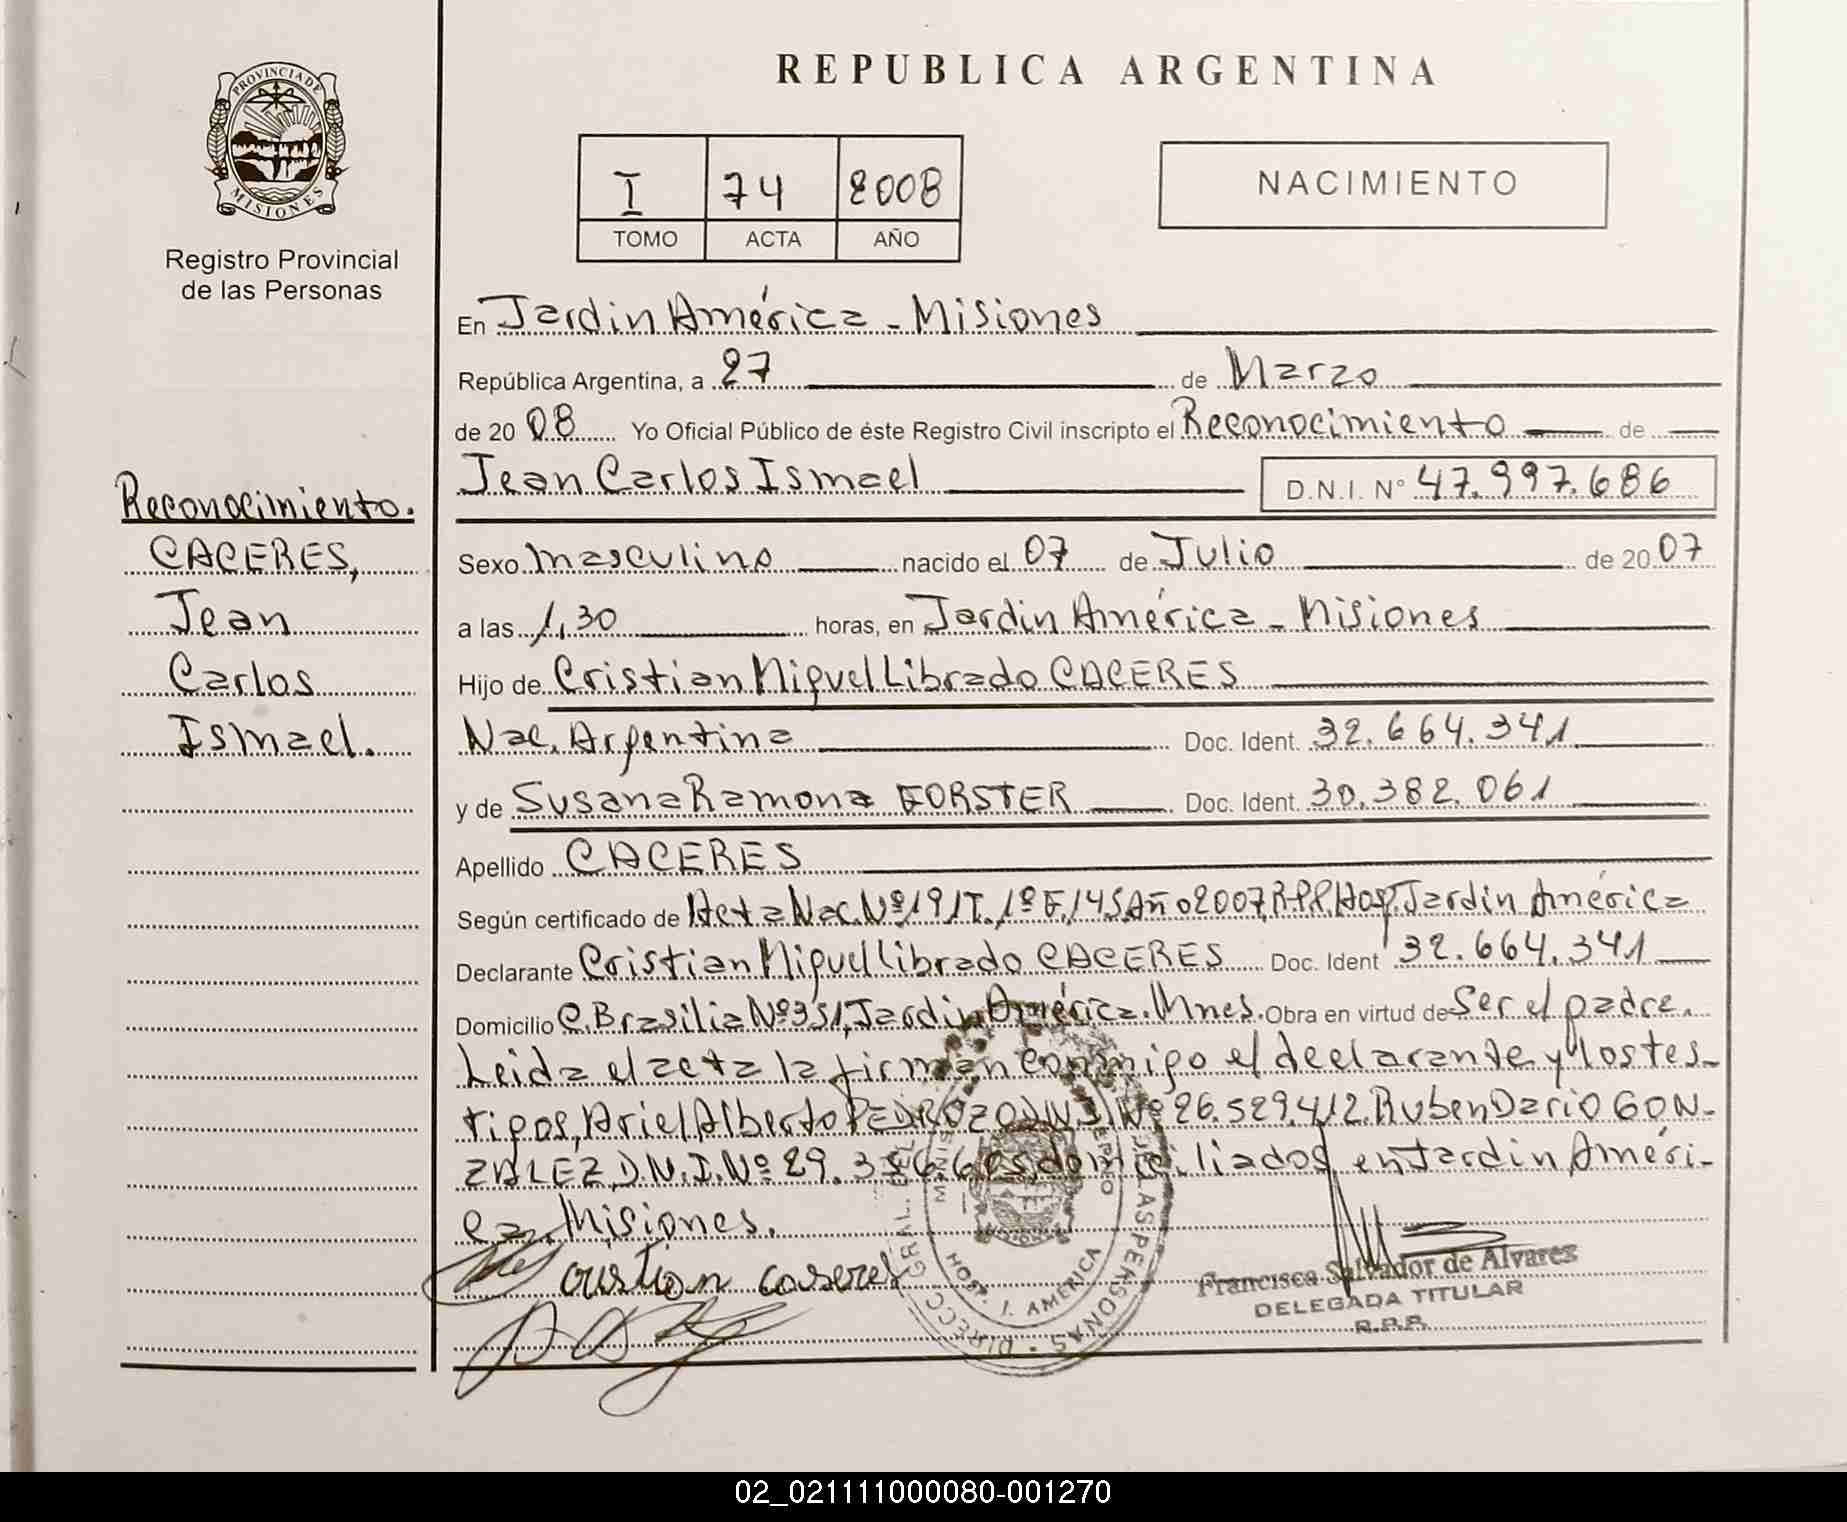 REPUBLICA ARGENTINA
PROVINCIA DE
MISIONES
Registro Provincial
de las Personas
I 74 2008
TOMO ACTA AÑO
NACIMIENTO
En Jardin América - Misiones
República Argentina, a 27 de Marzo
de 20 08 Yo Oficial Público de éste Registro Civil inscripto el Reconocimiento de
Jean Carlos Ismael D.N.I. N° 47.997.686
Reconocimiento.
CACERES,
Jean
Carlos
Ismael.
Sexo masculino nacido el 07 de Julio de 20 07
a las 1,30 horas, en Jardin América - Misiones
Hijo de Cristian Miguel Librado CACERES
Nac. Argentina Doc. Ident. 32.664.341
y de Susana Ramona FORSTER Doc. Ident. 30.382.061
Apellido CACERES
Según certificado de Acta Nac. Nº 191 T. 1º F. 145 Año 2007, R.P.P. Hosp. Jardin América
Declarante Cristian Miguel Librado CACERES Doc. Ident 32.664.341
Domicilio C. Brasilia Nº 351, Jardin América. Mnes. Obra en virtud de Ser el padre.
Leida el acta la firman conmigo el declarante y los tes-
tigos, Ariel Alberto PEDROZO D.N.I. Nº 26.529.412. Ruben Dario GON-
ZALEZ, D.N.I. Nº 29. domiciliados en Jardin Améri-
ca. Misiones.
cristian caseres
DIRECC. GRAL. DEL
LAS PERSONAS
HOSP. J. AMERICA
Francisca Salvador de Alvares
DELEGADA TITULAR
R.P.P.
02_021111000080-001270